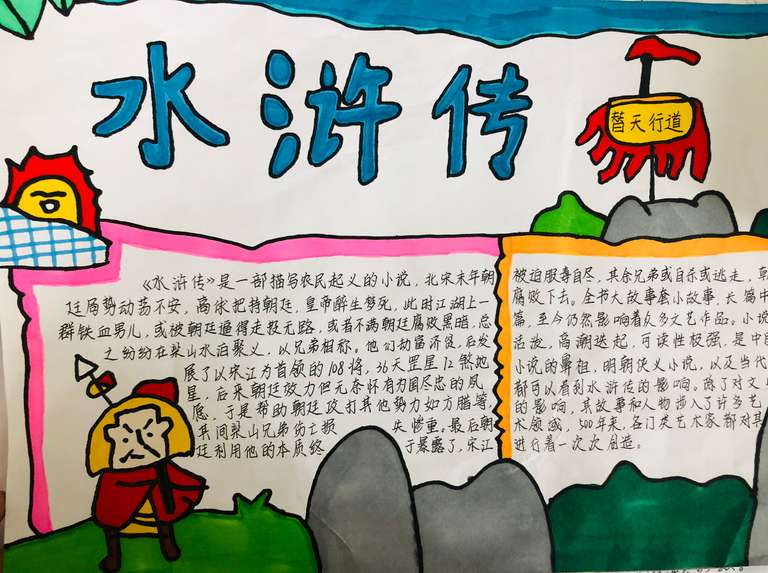 水浒传
替天行道
《水浒传》是一部描写农民起义的小说，北宋末年朝
廷局势动荡不安，高俅把持朝廷，皇帝醉生梦死，此时江湖上一
群铁血男儿，或被朝廷逼得走投无路，或者不满朝廷腐败黑暗，总
之纷纷在梁山水泊聚义，以兄弟相称。他们劫富济贫，后发
展了以宋江为首领的108将，36天罡星72煞地
星，后来朝廷效力但无奈怀有为国尽忠的夙
愿，于是帮助朝廷攻打其他势力如方腊等
其间梁山兄弟伤亡损失惨重。最后朝
廷利用他的本质终于暴露了，宋江
被迫服毒自尽，其余兄弟或自杀或逃走，
腐败下去。全书大故事套小故事，长篇中
篇，至今仍然影响着众多文艺作品。小说
活泼，高潮迭起，可读性极强，是中国
小说的鼻祖，明朝侠义小说，以及当代
都可以看到水浒传的影响。除了对文
的影响，其故事和人物涉入了许多艺
术领域，500年来，各门类艺术家都对其
进行着一次次创造。